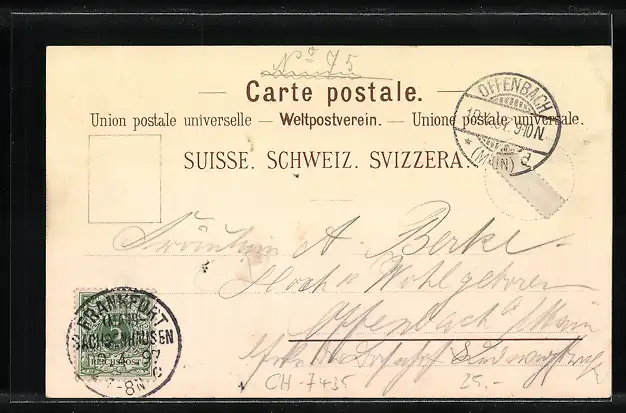 No 75
Carte postale.
Union postale universelle — Weltpostverein. — Unione postale universale.
SUISSE. SCHWEIZ. SVIZZERA.
OFFENBACH
9-10N.
* (MAIN) d
Fräulein A. Berke
Hoch u Wohlgeboren
Offenbach a/Main
FRANKFURT
SACHSENHAUSEN
97
REICHSPOST
7-8N
CH-7435
25.-